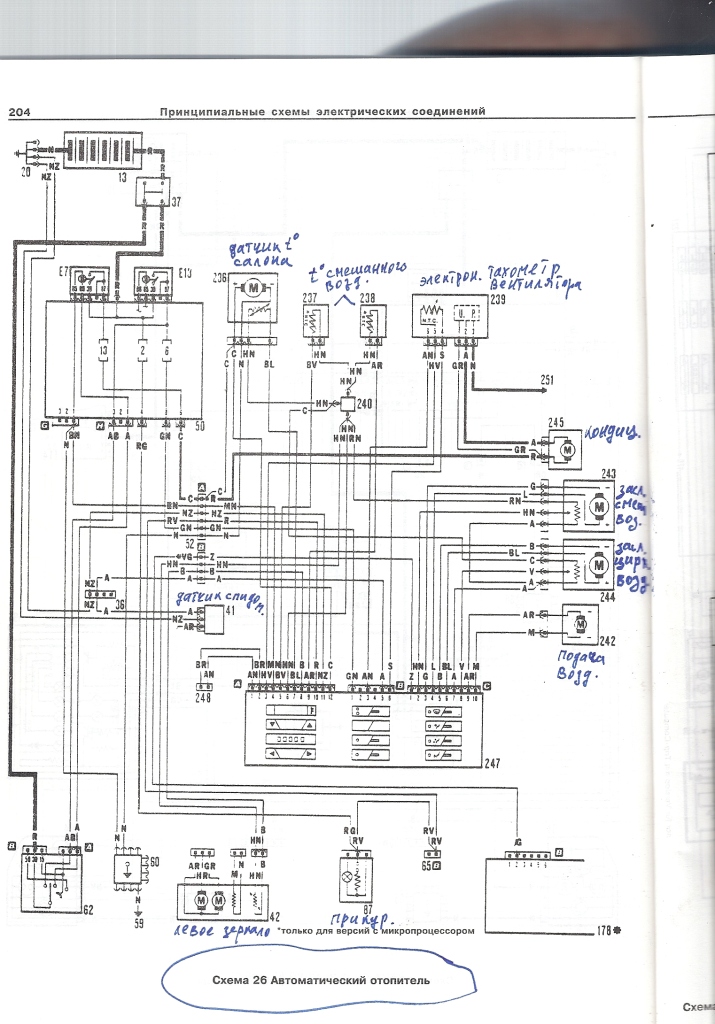 204
Принципиальные схемы электрических соединений
20
NZ
NZ
13
R
R
37
R
R
E7
E13
датчик t°
салона
236
M
t° смешанного
возд.
237
238
электрон. тахометр
вентилятора
239
N.T.C.
U. P.
C HN
C N BL
HN HN
BV AR
HN
HN
AN S A
HV GR N
251
13 2 6
50
G
H
N BN
AB A
RG
GN C
HN
C
240
HN
HN RN
245
кондиц.
A
GR
R
M
243
G
L
RN
HN
A
M
засл.
смеш
воз.
A
C R C
BN MN
NZ HZ
RV R
GN GN
N N
52
VG Z
HN HN
B B
A A
B
BL
C
V
A
A
M
244
засл.
цирк.
возд
NZ A
NZ
36
A
датчик спидом.
A
NZ
AR
41
AR
M
M
242
Подача
возд.
BR
AN
248
A
B
C
247
R
B
A
AB
A
62
N
N
60
N
59
B
HN
AR GR
HR
N
M
B
HN
M M
42
левое зеркало
RG
RV
87
прикур.
RV
RV
65
B
G
B
1 2 3 4 5 6
178
*только для версий с микропроцессором
Схема 26 Автоматический отопитель
Схема